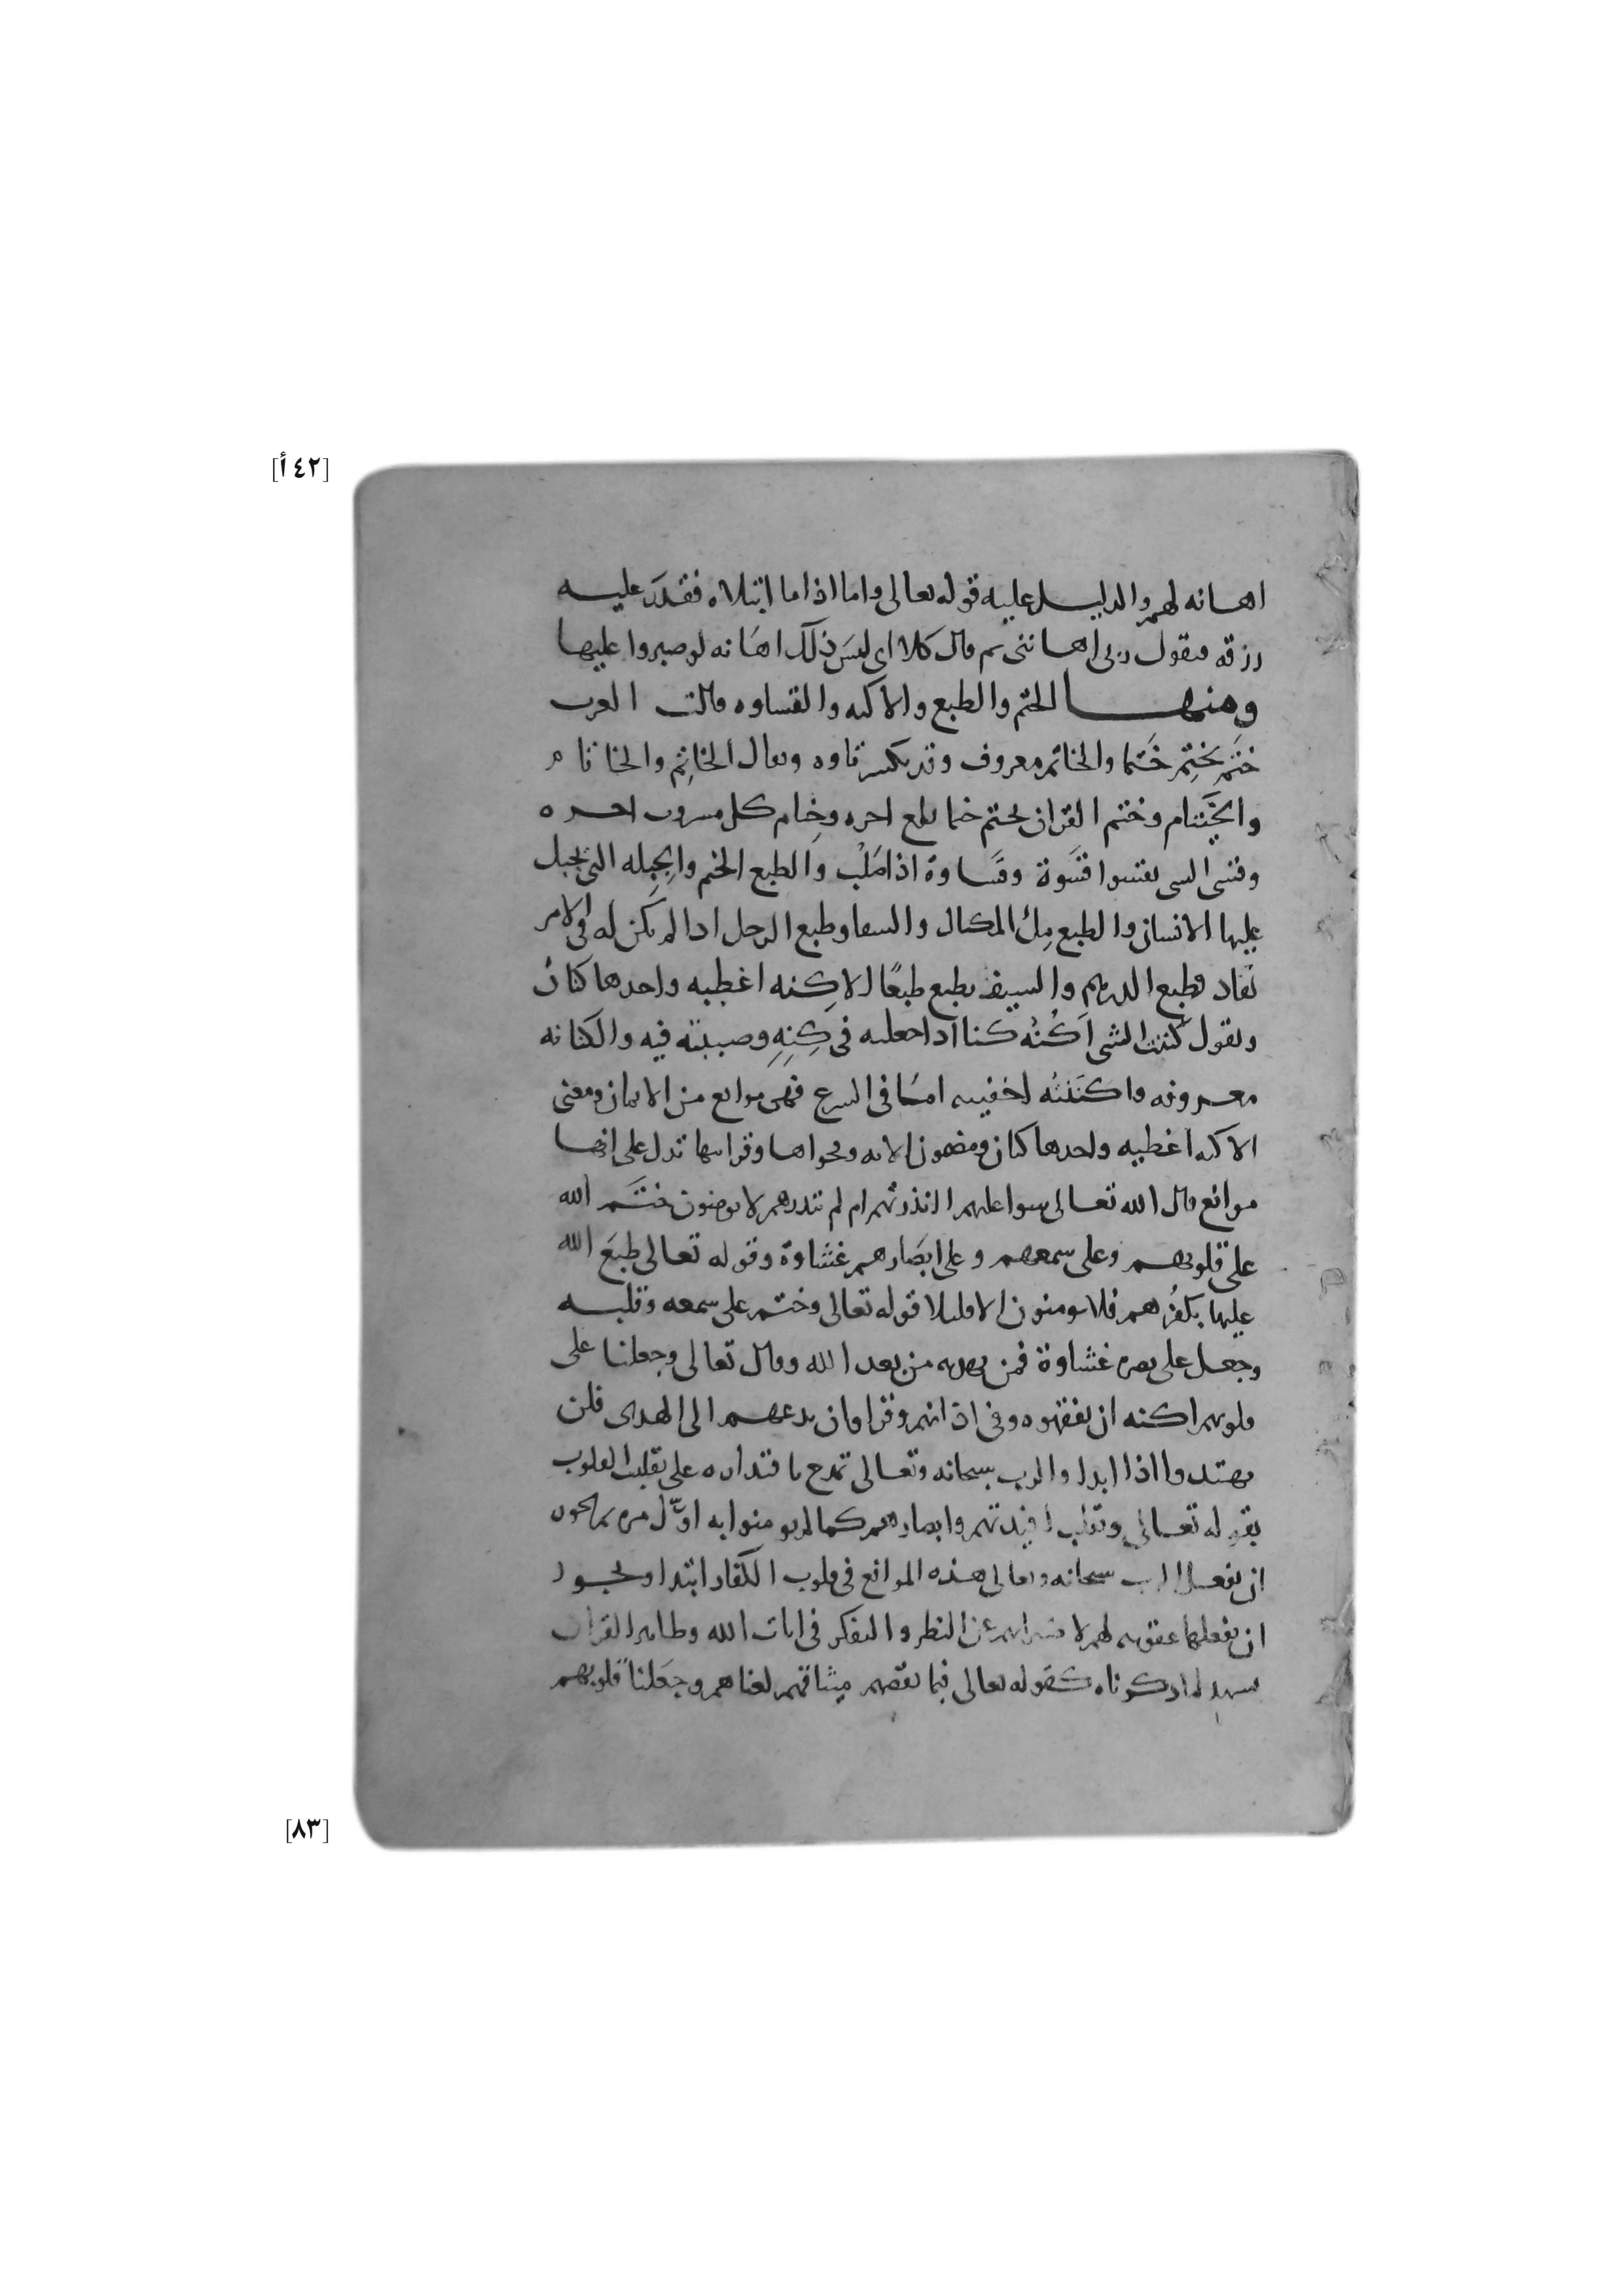 [٤٢أ]
اهانه لهم والدليل عليه قوله تعالى واما اذا ما ابتلاه فقدَر عليه
رزقه فيقول ربى اهاننى ثم قال كلا اى ليسَ ذلك اهَانه لو صبروا عليها
ومنها الختم والطبع والاكنه والقساوه قالت العرب
ختَم يختِم خَتما والخاتم معروف وقد تكسر تاوه ويقال الخاتِم والخاتام
والخَيْتام وختم القران يختم ختما بلغ اخره وخِتام كل مشروب اخره
وقسى الشى يقسوا قسَوة وقسَاوة اذا صَلُب والطبع الختم والجِبِله التى يجبل
عليها الانسان والطبع مِلئ المكيال والسقا وطبع الرجل اذا لم يكن له فى الامر
نفاد وطبع الدرهم والسيف يطبع طبعًا الاكِنه اغطيه واحدها كنان
وتقول كننت الشى اَكُنُه كنا اذا جعلته فى كِنِهِ وصببته فيه والكنانه
معروفه واكنَنتُه اخفيته امَا فى الشرع فهى موانع من الايمان ومعنى
الاكنه اغطيه واحدها كنان ومضمون الايه وفحواها وقراينها تدل على انها
موانع قال الله تعالى سوا عليهم اانذرتهم ام لم تنذرهم لا يومنون ختَم الله
على قلوبهم وعلى سمعهم وعلى ابصَارهم غشاوة وقوله تعالى طبَع الله
عليها بكفُرهم فلا يومنون الا قليلا قوله تعالى وختم على سمعه وقلبه
وجعل على بصره غشاوة فمن يهديه من بعد الله وقال تعالى وجعلنا على
قلوبهم اكنه ان يفقهوه وفى اذانهم وقرا وان تدعهم الى الهدى فلن
يهتدوا اذا ابدا والرب سبحانه وتعالى تمدح باقتداره على تقليب القلوب
بقوله تعالى ونقلب افيدتهم وابصارهم كما لم يومنوا به اوّل مره ثم يجوز
ان يفعل الرب سبحانه وتعالى هذه الموانع فى قلوب الكفار ابتدا ويجوز
ان يفعلها عقوبه لهم عن النظر والتفكر فى ايات الله وظاهر القران
يشهد لما ذكرناه كقوله تعالى فبما نقضهم ميثاقهم لعناهم وجعَلنا قلوبهم
[٨٣]